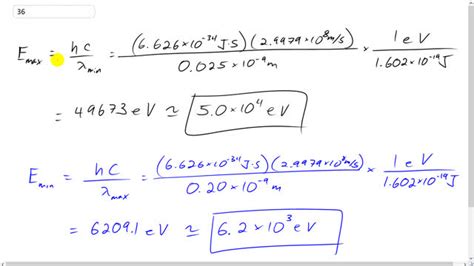 36
E_max = hC/λ_min = (6.626×10^-34 J·S)(2.9979×10^8 m/s)/0.025×10^-9 m × 1 eV/1.602×10^-19 J
= 49673 eV ≃ 5.0×10^4 eV
E_min = hC/λ_max = (6.626×10^-34 J·S)(2.9979×10^8 m/s)/0.20×10^-9 m × 1 eV/1.602×10^-19 J
= 6209.1 eV ≃ 6.2×10^3 eV